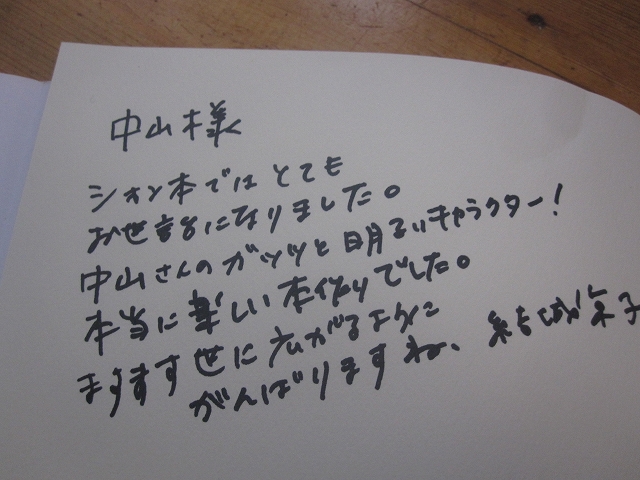 中山様
シオン本ではとても
お世話になりました。
中山さんのガッツと明るいキャラクター!
本当に楽しい本作りでした。
ますます世に広がるように
がんばりますね、 結城奈子